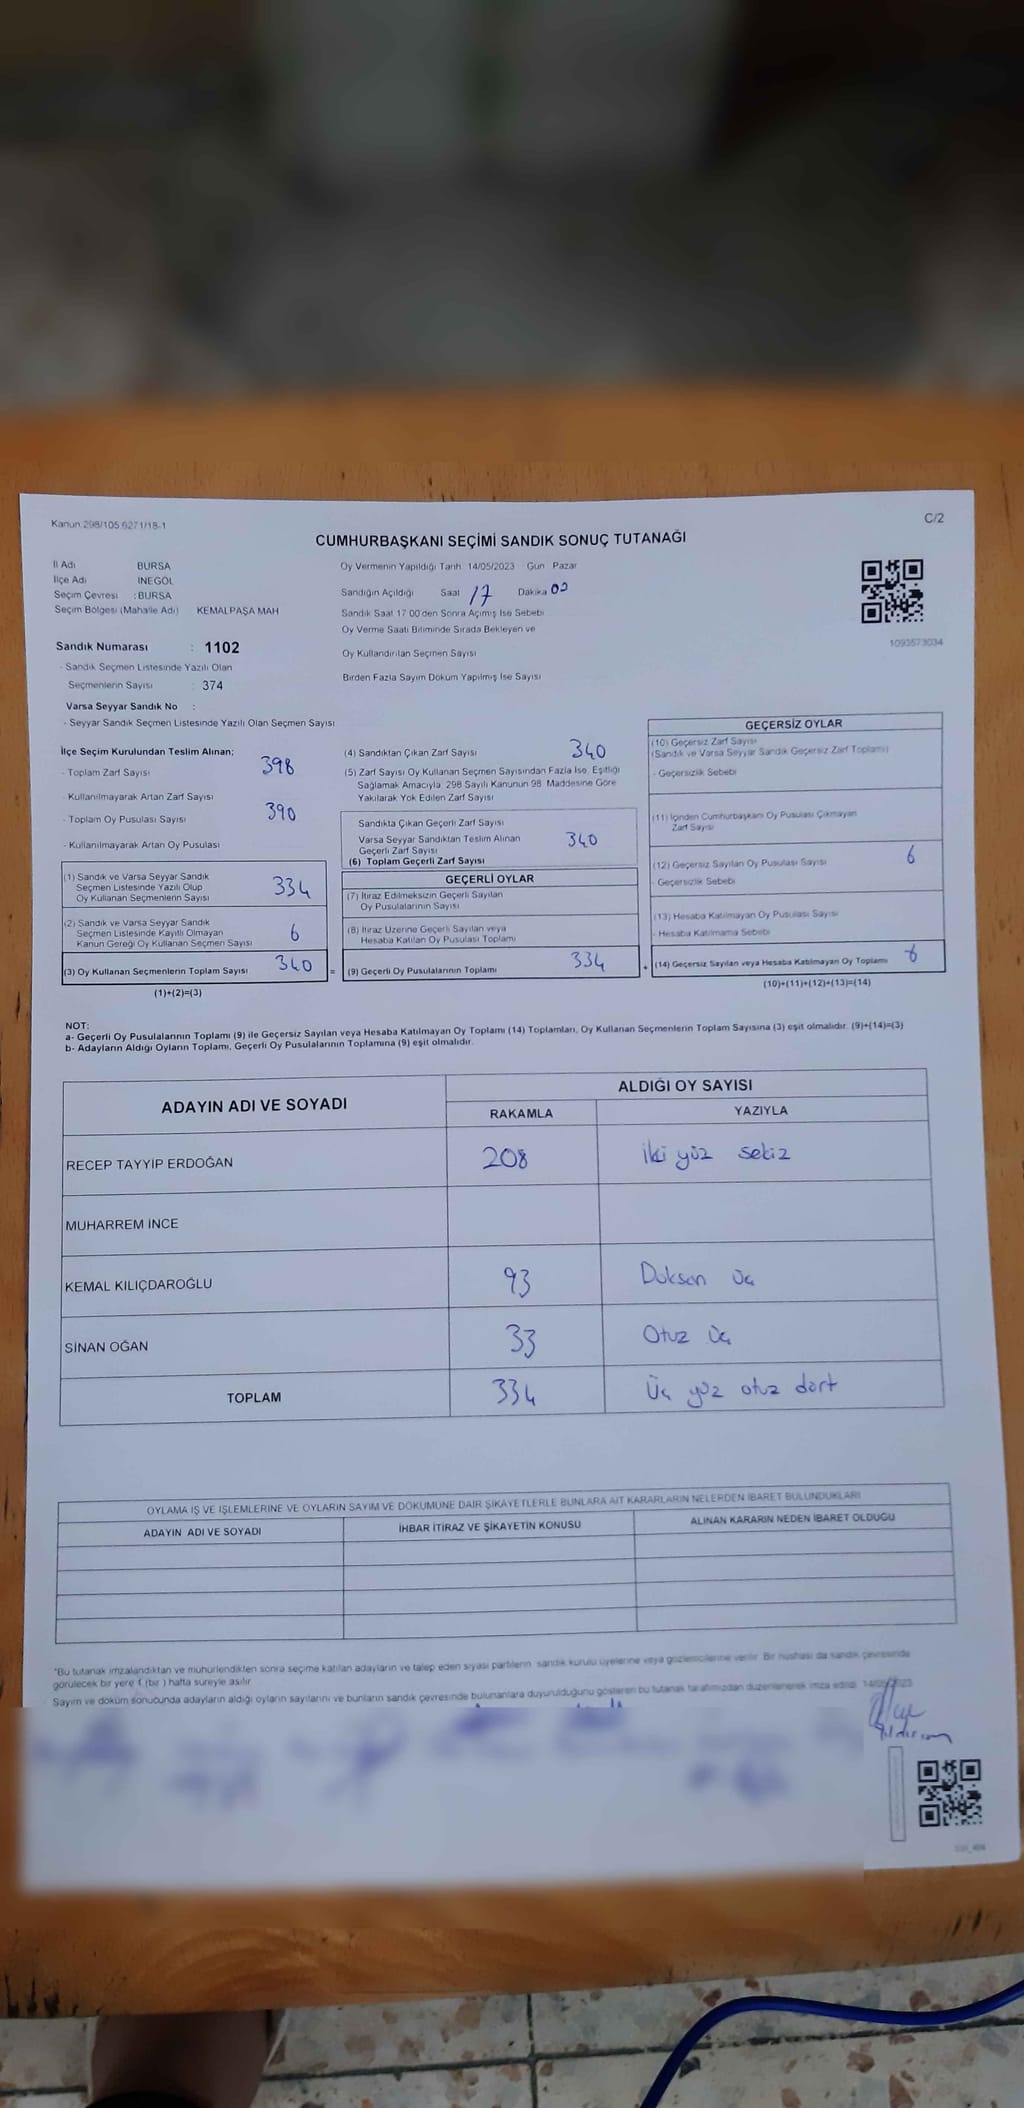 Kanun.298/105.6271/18-1
C/2
CUMHURBAŞKANI SEÇİMİ SANDIK SONUÇ TUTANAĞI
İl Adı BURSA
İlçe Adı İNEGÖL
Seçim Çevresi : BURSA
Seçim Bölgesi (Mahalle Adı) KEMALPAŞA MAH
Oy Vermenin Yapıldığı Tarih 14/05/2023 Gün Pazar
Sandığın Açıldığı Saat 17 Dakika 00
Sandık Saat 17 00'den Sonra Açılmış İse Sebebi
Oy Verme Saati Bitiminde Sırada Bekleyen ve
Oy Kullandırılan Seçmen Sayısı
Birden Fazla Sayım Döküm Yapılmış İse Sayısı
1093573034
Sandık Numarası : 1102
- Sandık Seçmen Listesinde Yazılı Olan
Seçmenlerin Sayısı : 374
Varsa Seyyar Sandık No :
- Seyyar Sandık Seçmen Listesinde Yazılı Olan Seçmen Sayısı
İlçe Seçim Kurulundan Teslim Alınan;
- Toplam Zarf Sayısı 398
- Kullanılmayarak Artan Zarf Sayısı
- Toplam Oy Pusulası Sayısı 390
- Kullanılmayarak Artan Oy Pusulası
(1) Sandık ve Varsa Seyyar Sandık
Seçmen Listesinde Yazılı Olup
Oy Kullanan Seçmenlerin Sayısı 334
(2) Sandık ve Varsa Seyyar Sandık
Seçmen Listesinde Kayıtlı Olmayan
Kanun Gereği Oy Kullanan Seçmen Sayısı 6
(3) Oy Kullanan Seçmenlerin Toplam Sayısı 340 =
(1)+(2)=(3)
(4) Sandıktan Çıkan Zarf Sayısı 340
(5) Zarf Sayısı Oy Kullanan Seçmen Sayısından Fazla İse, Eşitliği
Sağlamak Amacıyla, 298 Sayılı Kanunun 98. Maddesine Göre
Yakılarak Yok Edilen Zarf Sayısı
Sandıkta Çıkan Geçerli Zarf Sayısı
Varsa Seyyar Sandıktan Teslim Alınan
Geçerli Zarf Sayısı
(6) Toplam Geçerli Zarf Sayısı 340
GEÇERLİ OYLAR
(7) İtiraz Edilmeksizin Geçerli Sayılan
Oy Pusulalarının Sayısı
(8) İtiraz Üzerine Geçerli Sayılan veya
Hesaba Katılan Oy Pusulası Toplamı
(9) Geçerli Oy Pusulalarının Toplamı 334 +
GEÇERSİZ OYLAR
(10) Geçersiz Zarf Sayısı
(Sandık ve Varsa Seyyar Sandık Geçersiz Zarf Toplamı)
- Geçersizlik Sebebi
(11) İçinden Cumhurbaşkanı Oy Pusulası Çıkmayan
Zarf Sayısı
(12) Geçersiz Sayılan Oy Pusulası Sayısı 6
- Geçersizlik Sebebi
(13) Hesaba Katılmayan Oy Pusulası Sayısı
- Hesaba Katılmama Sebebi
(14) Geçersiz Sayılan veya Hesaba Katılmayan Oy Toplamı 6
(10)+(11)+(12)+(13)=(14)
NOT:
a- Geçerli Oy Pusulalarının Toplamı (9) ile Geçersiz Sayılan veya Hesaba Katılmayan Oy Toplamı (14) Toplamları, Oy Kullanan Seçmenlerin Toplam Sayısına (3) eşit olmalıdır. (9)+(14)=(3)
b- Adayların Aldığı Oyların Toplamı, Geçerli Oy Pusulalarının Toplamına (9) eşit olmalıdır.
ADAYIN ADI VE SOYADI
ALDIĞI OY SAYISI
RAKAMLA YAZIYLA
RECEP TAYYİP ERDOĞAN 208 iki yüz sekiz
MUHARREM İNCE
KEMAL KILIÇDAROĞLU 93 Doksan üç
SİNAN OĞAN 33 Otuz üç
TOPLAM 334 Üç yüz otuz dört
OYLAMA İŞ VE İŞLEMLERİNE VE OYLARIN SAYIM VE DÖKÜMÜNE DAİR ŞİKAYETLERLE BUNLARA AİT KARARLARIN NELERDEN İBARET BULUNDUKLARI
ADAYIN ADI VE SOYADI İHBAR İTİRAZ VE ŞİKAYETİN KONUSU ALINAN KARARIN NEDEN İBARET OLDUĞU
*Bu tutanak imzalandıktan ve mühürlendikten sonra seçime katılan adayların ve talep eden siyasi partilerin sandık kurulu üyelerine veya gözlemcilerine verilir. Bir nüshası da sandık çevresinde
görülecek bir yere 1 (bir) hafta süreyle asılır
Sayım ve döküm sonucunda adayların aldığı oyların sayılarını ve bunların sandık çevresinde bulunanlara duyurulduğunu gösteren bu tutanak tarafımızdan düzenlenerek imza edildi. 14/05/2023
Yıldırım